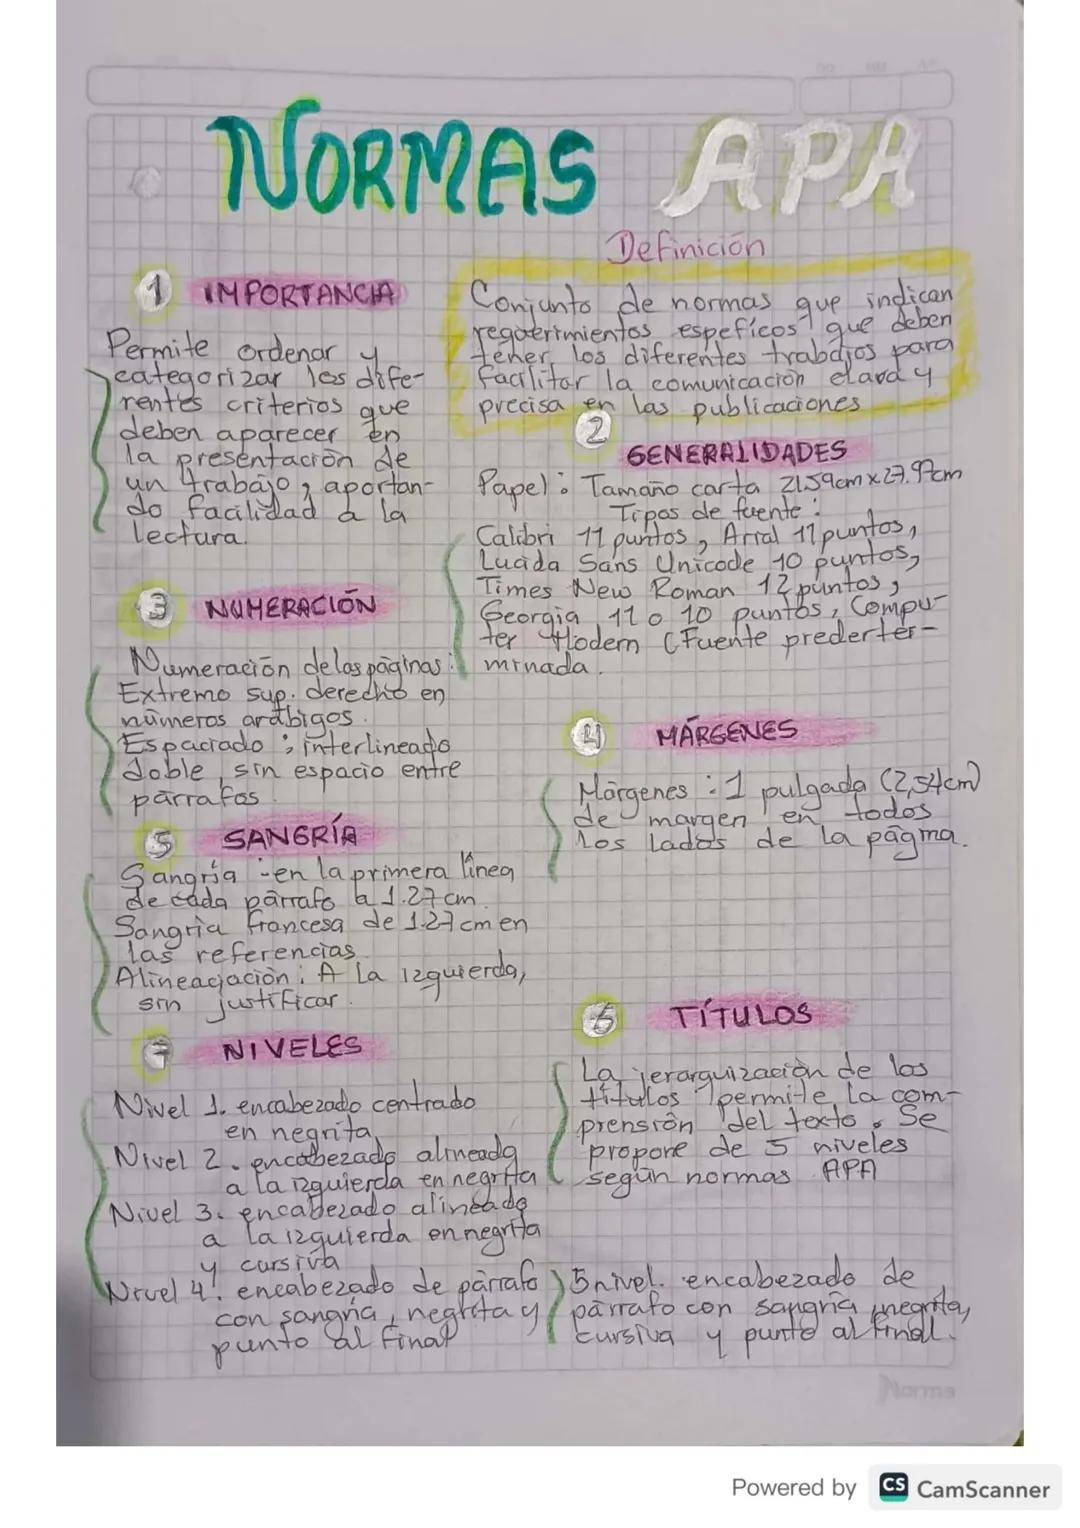 NORMAS APA
Definición
Conjunto de normas que indican
requerimientos espeficos que deben
tener los diferentes trabajos para
facilitar la comunicación clara y
precisa en las publicaciones
1 IMPORTANCIA
Permite ordenar y
categorizar los dife-
rentes criterios que
deben aparecer en
la presentación de
un trabajo, aportan-
do facilidad a la
lectura.
2
GENERALIDADES
Papel: Tamaño carta 21.59cm x 27.94cm
Tipos de fuente:
Calibri 11 puntos, Arial 11 puntos,
Lucida Sans Unicode 10 puntos,
Times New Roman 12 puntos,
Georgia 11 o 10 puntos, Compu-
ter Modern (Fuente prederter-
minada.
3 NUMERACIÓN
Numeración de las páginas:
Extremo sup. derecho en
números arábigos.
Espaciado: interlineado
doble, sin espacio entre
párrafos
4 MÁRGENES
Márgenes: 1 pulgada (2,54cm)
de margen en todos
los lados de la página.
5 SANGRÍA
Sangría - en la primera línea
de cada párrafo a 1.27 cm.
Sangría francesa de 1.27 cm en
las referencias
Alineaciación: A la izquierda,
sin justificar.
6 TÍTULOS
La jerarquización de los
títulos permite la com-
prensión del texto. Se
propone de 5 niveles
según normas APA
7 NIVELES
Nivel 1. encabezado centrado
en negrita
Nivel 2. encabezado alineado
a la izquierda en negrita
Nivel 3. encabezado alineado
a la izquierda en negrita
y cursiva
Nivel 4. encabezado de párrafo
con sangría, negrita y
punto al final
5 nivel. encabezado de
párrafo con sangría, negrita,
cursiva y punto al final.
Norma
Powered by CS CamScanner